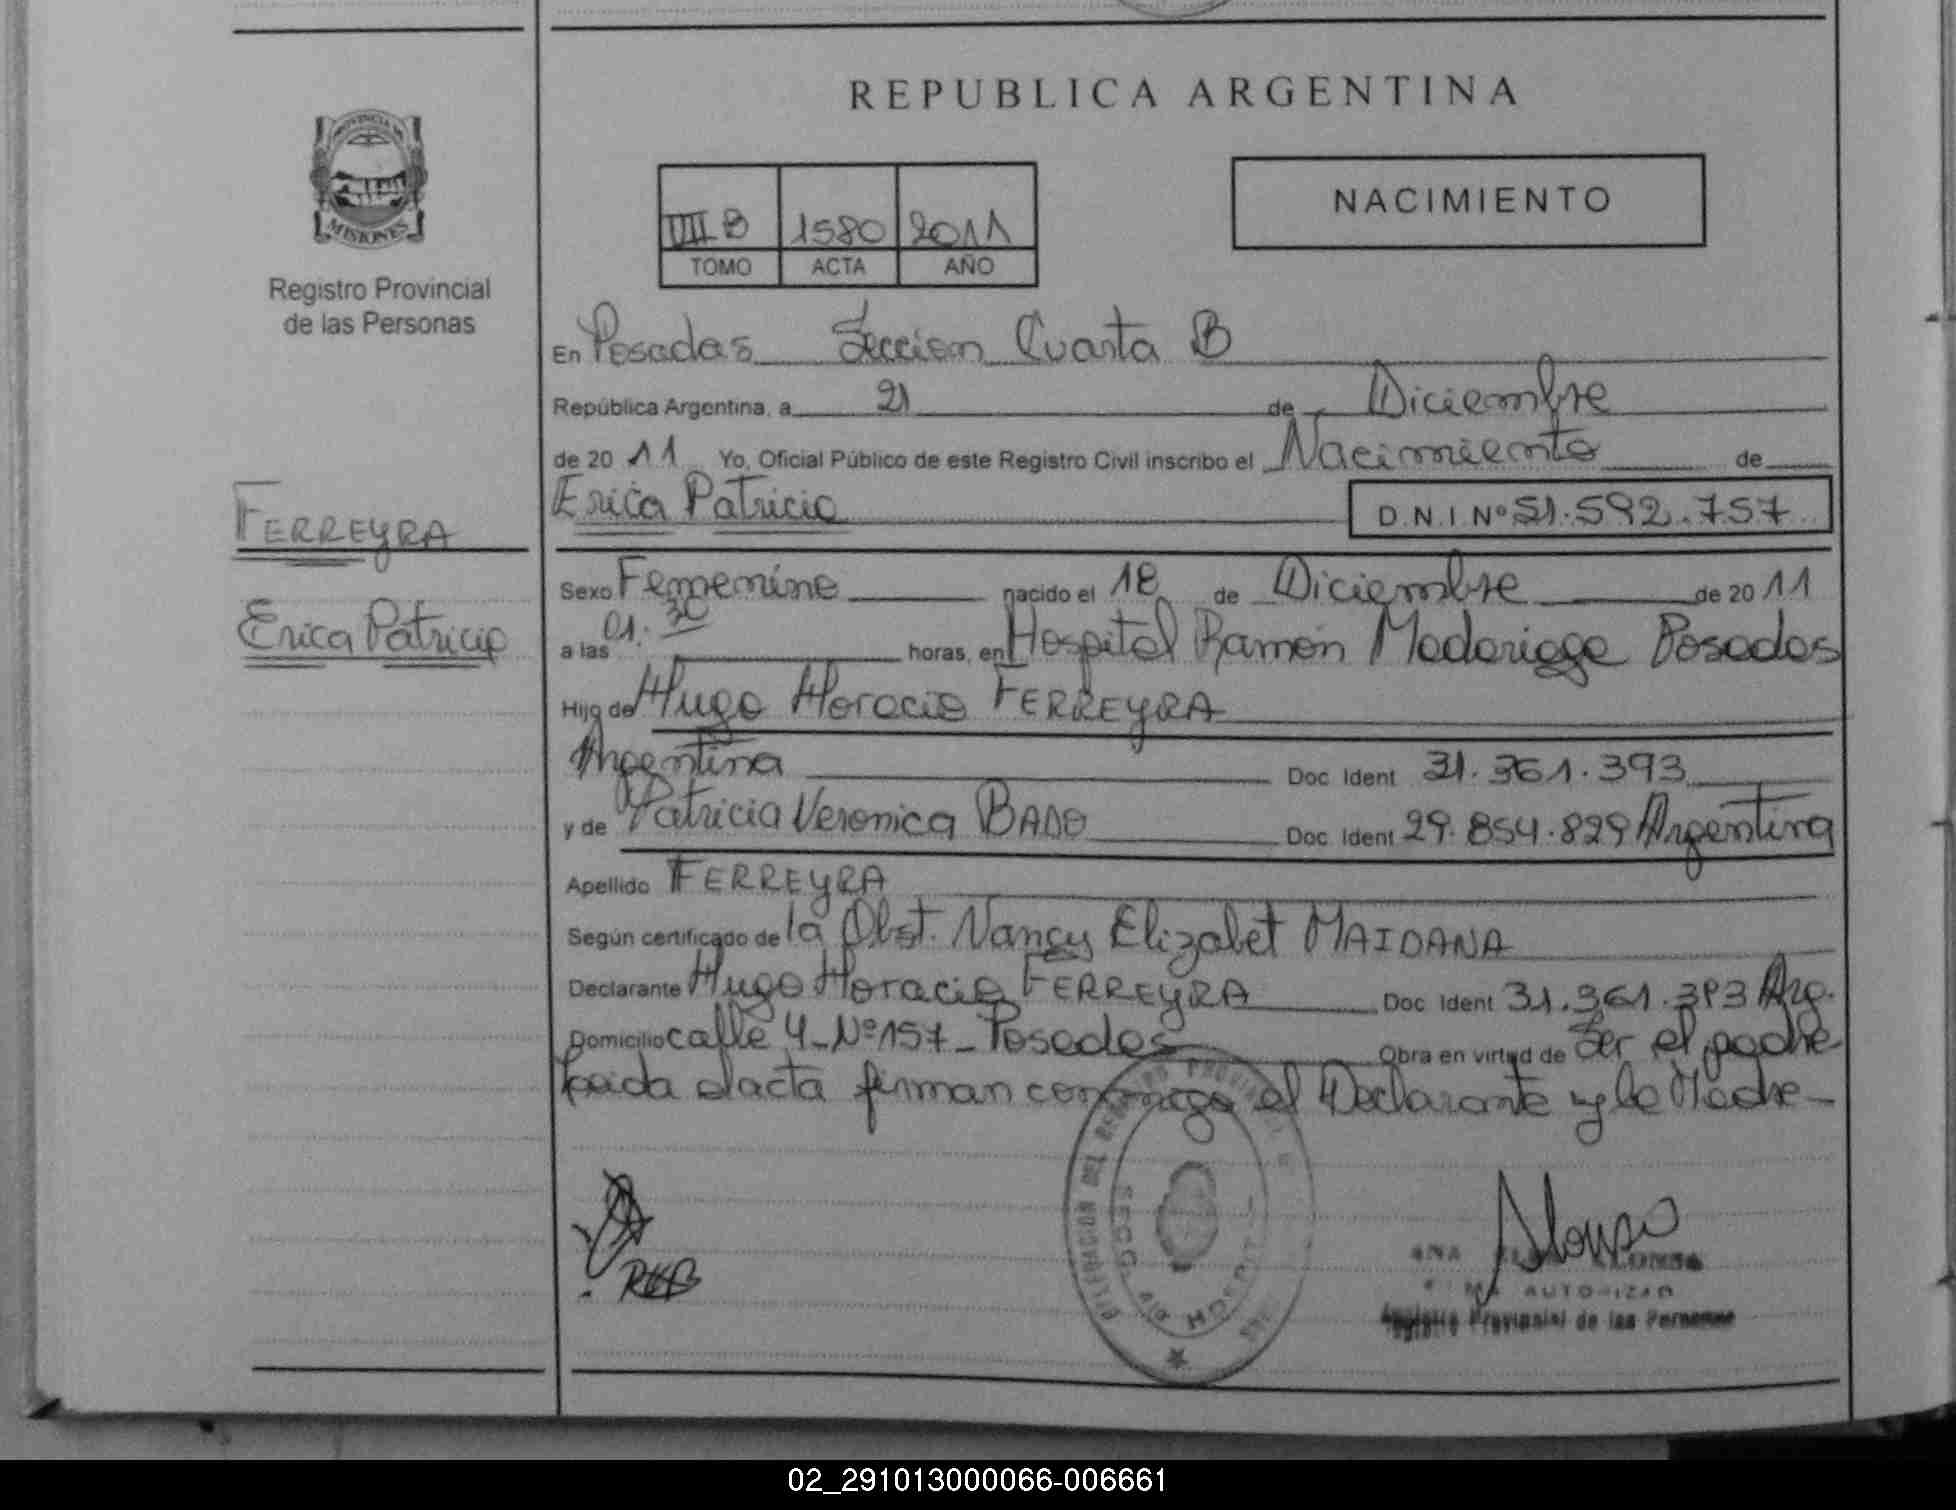 REPUBLICA ARGENTINA
PROVINCIA DE
MISIONES
Registro Provincial
de las Personas
VIII B 1580 2011
TOMO ACTA AÑO
NACIMIENTO
En Posadas Seccion Cuarta B
República Argentina, a 21 de Diciembre
de 20 11 Yo, Oficial Público de este Registro Civil inscribo el Nacimiento de
Erica Patricia D.N.I Nº 51.592.757
FERREYRA
Erica Patricia
Sexo Femenino nacido el 18 de Diciembre de 20 11
a las 01.30 horas, en Hospital Ramón Madariaga Posadas
Hijo de Hugo Horacio FERREYRA
Argentina Doc Ident 31.361.393
y de Patricia Veronica BADO Doc Ident 29.854.829 Argentina
Apellido FERREYRA
Según certificado de la Obst. Nancy Elizabet MAIDANA
Declarante Hugo Horacio FERREYRA Doc Ident 31.361.393 Arg.
Domicilio calle 4-Nº157-Posadas Obra en virtud de Ser el padre
Leida el acta firman conmigo el Declarante y la Madre-
Alonso
ANA ALONSO
AUTORIZAD
Registro Provincial de las Personas
02_291013000066-006661